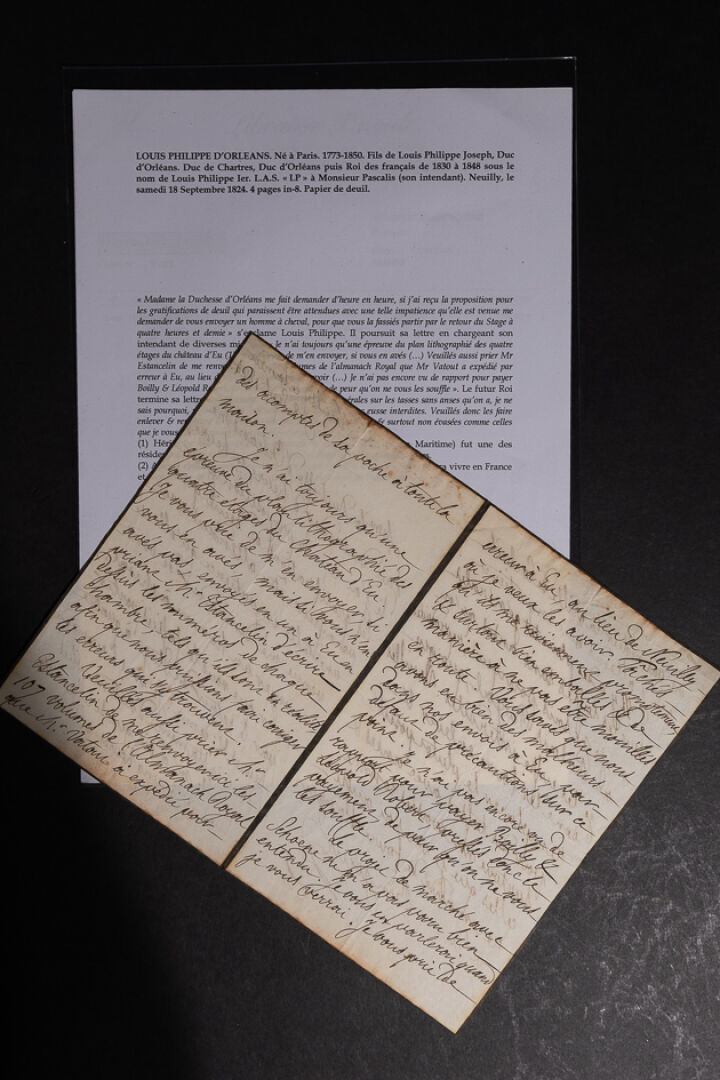 LOUIS PHILIPPE D'ORLEANS. Né à Paris. 1773-1850. Fils de Louis Philippe Joseph, Duc
d'Orléans. Duc de Chartres, Duc d'Orléans puis Roi des français de 1830 à 1848 sous le
nom de Louis Philippe Ier. L.A.S. « LP » à Monsieur Pascalis (son intendant). Neuilly, le
samedi 18 Septembre 1824. 4 pages in-8. Papier de deuil.
« Madame la Duchesse d'Orléans me fait demander d'heure en heure, si j'ai reçu la proposition pour
les gratifications de deuil qui paraissent être attendues avec une telle impatience qu'elle est venue me
demander de vous envoyer un homme à cheval, pour que vous la fassiés partir par le retour du Stage à
quatre heures et demie » s'exclame Louis Philippe. Il poursuit sa lettre en chargeant son
intendant de diverses mi Je n'ai toujours qu'une épreuve du plan lithographié des quatre
étages du château d'Eu de m'en envoyer, si vous en avés (...) Veuillés aussi prier Mr
Estancelin de me renv umes de l'almanach Royal que Mr Vatout a expédié par
erreur à Eu, au lieu d voir (...) Je n'ai pas encore vu de rapport pour payer
Boilly & Léopold R de peur qu'on ne vous les souffle ». Le futur Roi
termine sa lettr érales sur les tasses sans anses qu'on a, je ne
sais pourquoi, eusse interdites. Veuillés donc les faire
enlever & re & surtout non évasées comme celles
que je vous
(1) Héri Maritime) fut une des
réside
(2) ra vivre en France
et
des acomptes de sa poche à toute la
maison.
Je n'ai toujours qu'une
épreuve du plan lithographié des
quatre étages du château d'Eu
je vous prie de m'en envoyer, si
vous en avés, mais si vous n'en
avés pas, envoyés en un à Eu en
priant Mr Estancelin d'écrire
dessus les numéros de chaque
chambre, tels qu'ils sont en réalité
afin que nous puissions faire corriger
les erreurs qui s'y trouvent.
Veuillés aussi prier Mr
Estancelin de me renvoyer ici les
107 volumes de l'Almanach Royal
que Mr Vatout a expédié par
erreur à Eu, au lieu de Neuilly
où je veux les avoir. Qu'ils
me reviennent promptement
& surtout bien emballés & de
manière à ne pas être mouillés
en route. Vous savés que nous
avons eu bien des malheurs
dans nos envois à Eu, par
défaut de précautions sur ce
point. Je n'ai pas encore vu de
rapport pour payer Boilly &
Léopold Robert. Pressés donc le
payement de peur qu'on ne vous
les souffle.
Le projet de marché avec
Schoene ne m'a pas paru bien
entendu. Je vous en parlerai quand
je vous verrai. Je vous prie de